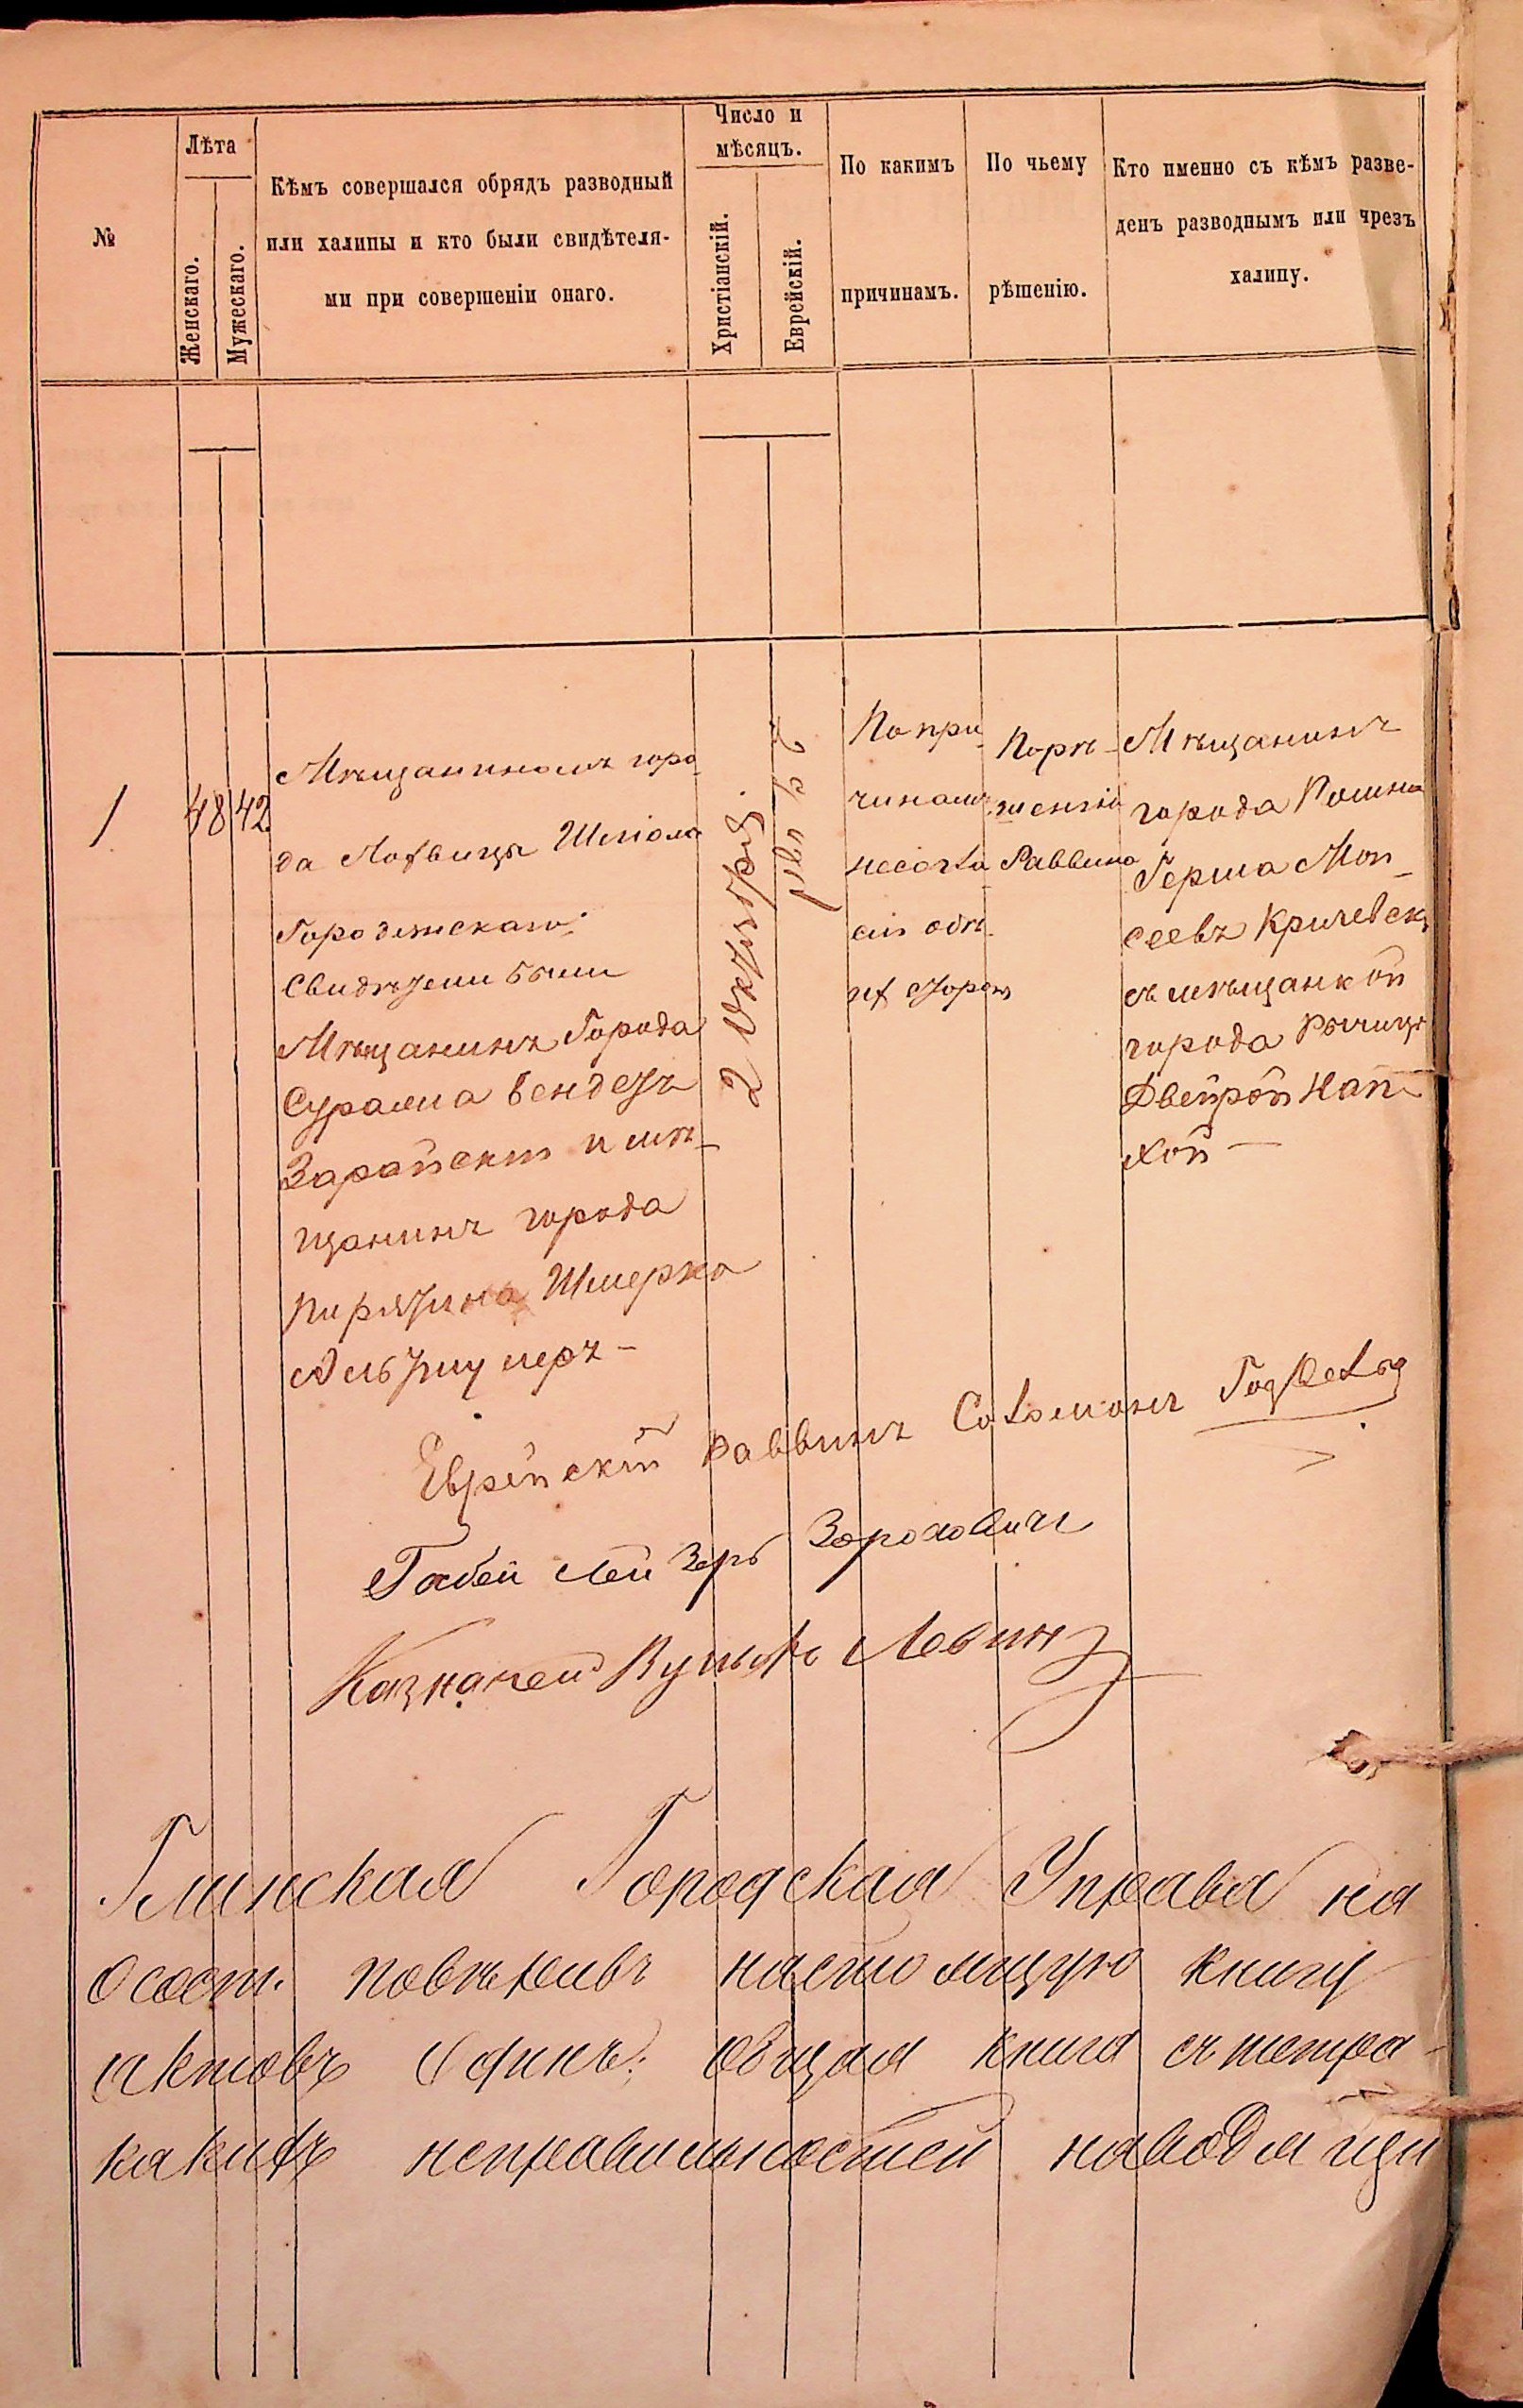 №
Лѣта
Женскаго.
Мужескаго.
Кѣмъ совершался обрядъ разводный
или халицы и кто были свидѣтеля-
ми при совершеніи онаго.
Число и
мѣсяцъ.
Христіанскій.
Еврейскій.
По какимъ
причинамъ.
По чьему
рѣшенію.
Кто именно съ кѣмъ разве-
денъ разводнымъ или чрезъ
халицу.
1
48
42
Мѣщаниномъ горо
да Лохвицы
Городежскаго.
Свидѣтели были
Мѣщанинъ Города
Суража Бендетъ
Зарайскій и мѣ-
щанинъ города
Пирятина Шмерко
2 Октября
По при
чинамъ
несогла
сія обѣ-
ихъ сторон
По рѣ-
шенію
Раввина
Мѣщанинъ
города Ромна
Герша Мов-
сеевъ Кричевск
съ мѣщанкой
города Речицы
Двейрой Нап-
хой —
Еврейскій Раввинъ Соломонъ
Габей Лейзеръ Зорохович
Казначей Вульфъ Левин
Глинская Городская Управа на
осост. повѣривъ настоящую книгу
актовъ общая книга съ тетра-
какихъ неправильностей